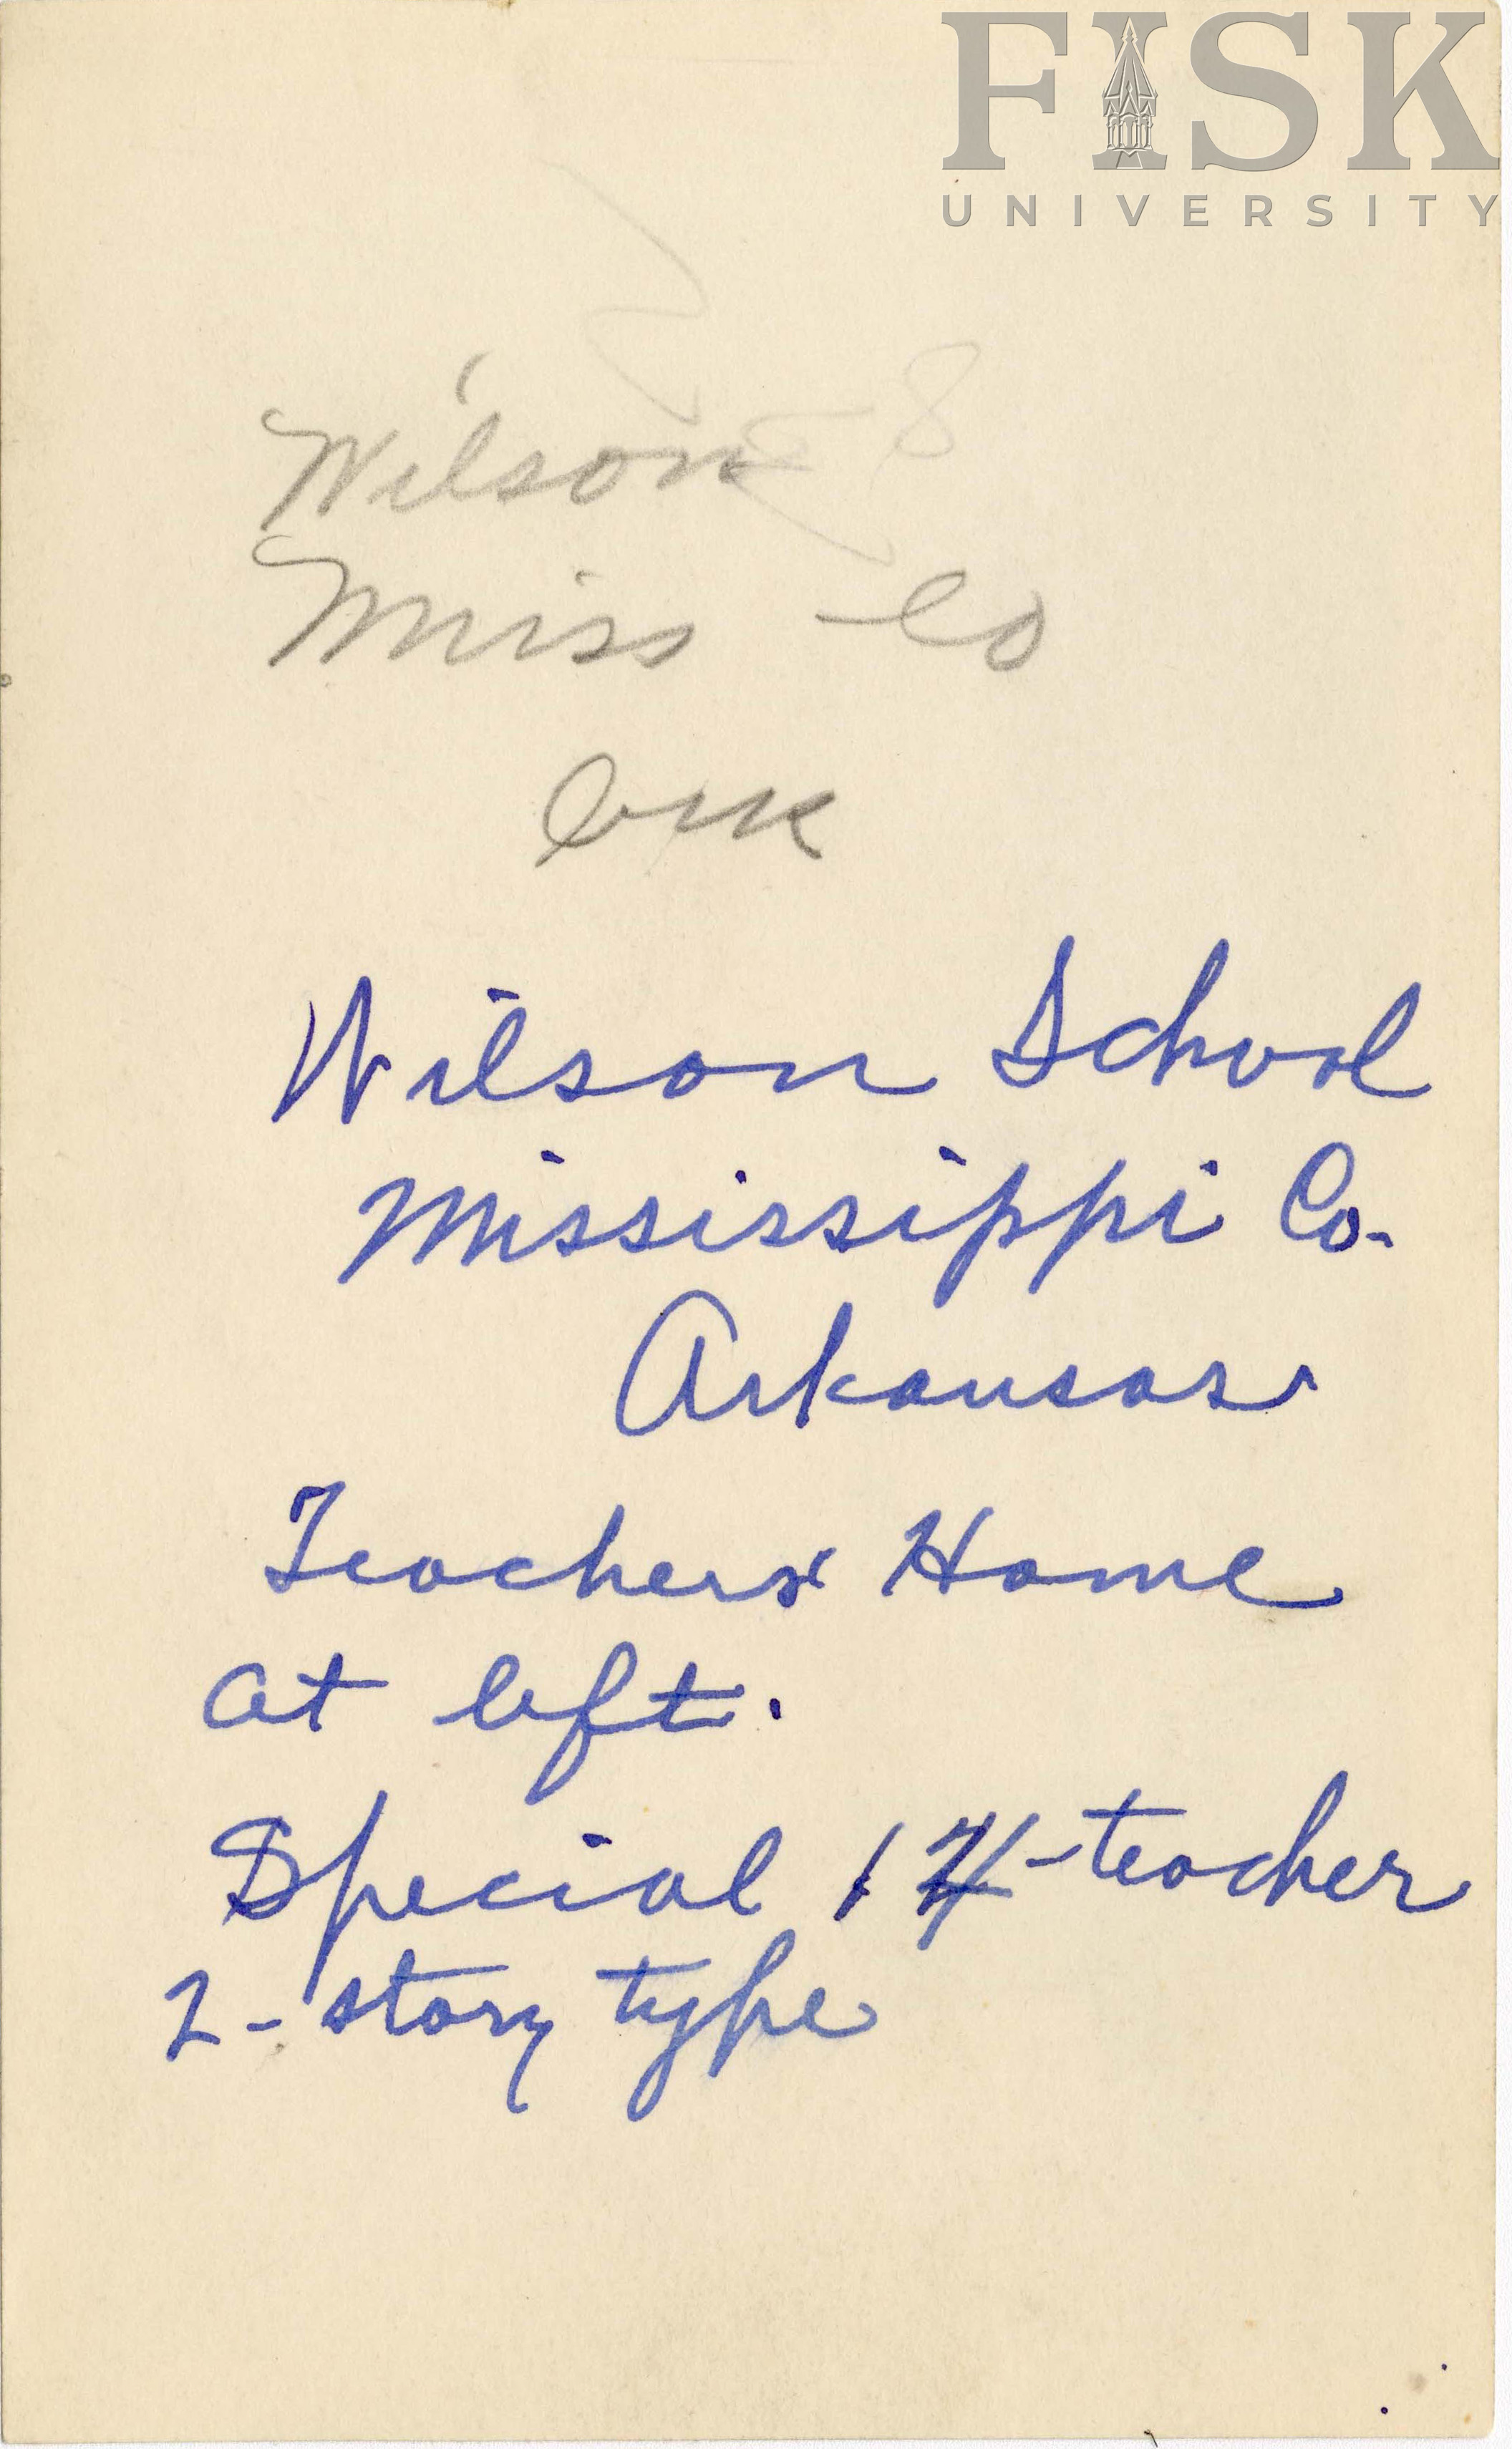 FISK
UNIVERSITY
Wilson
Miss Co
Ark
Wilson School
Mississippi Co.
Arkansas
Teachers' Home
at left.
Special 14-teacher
2-story type